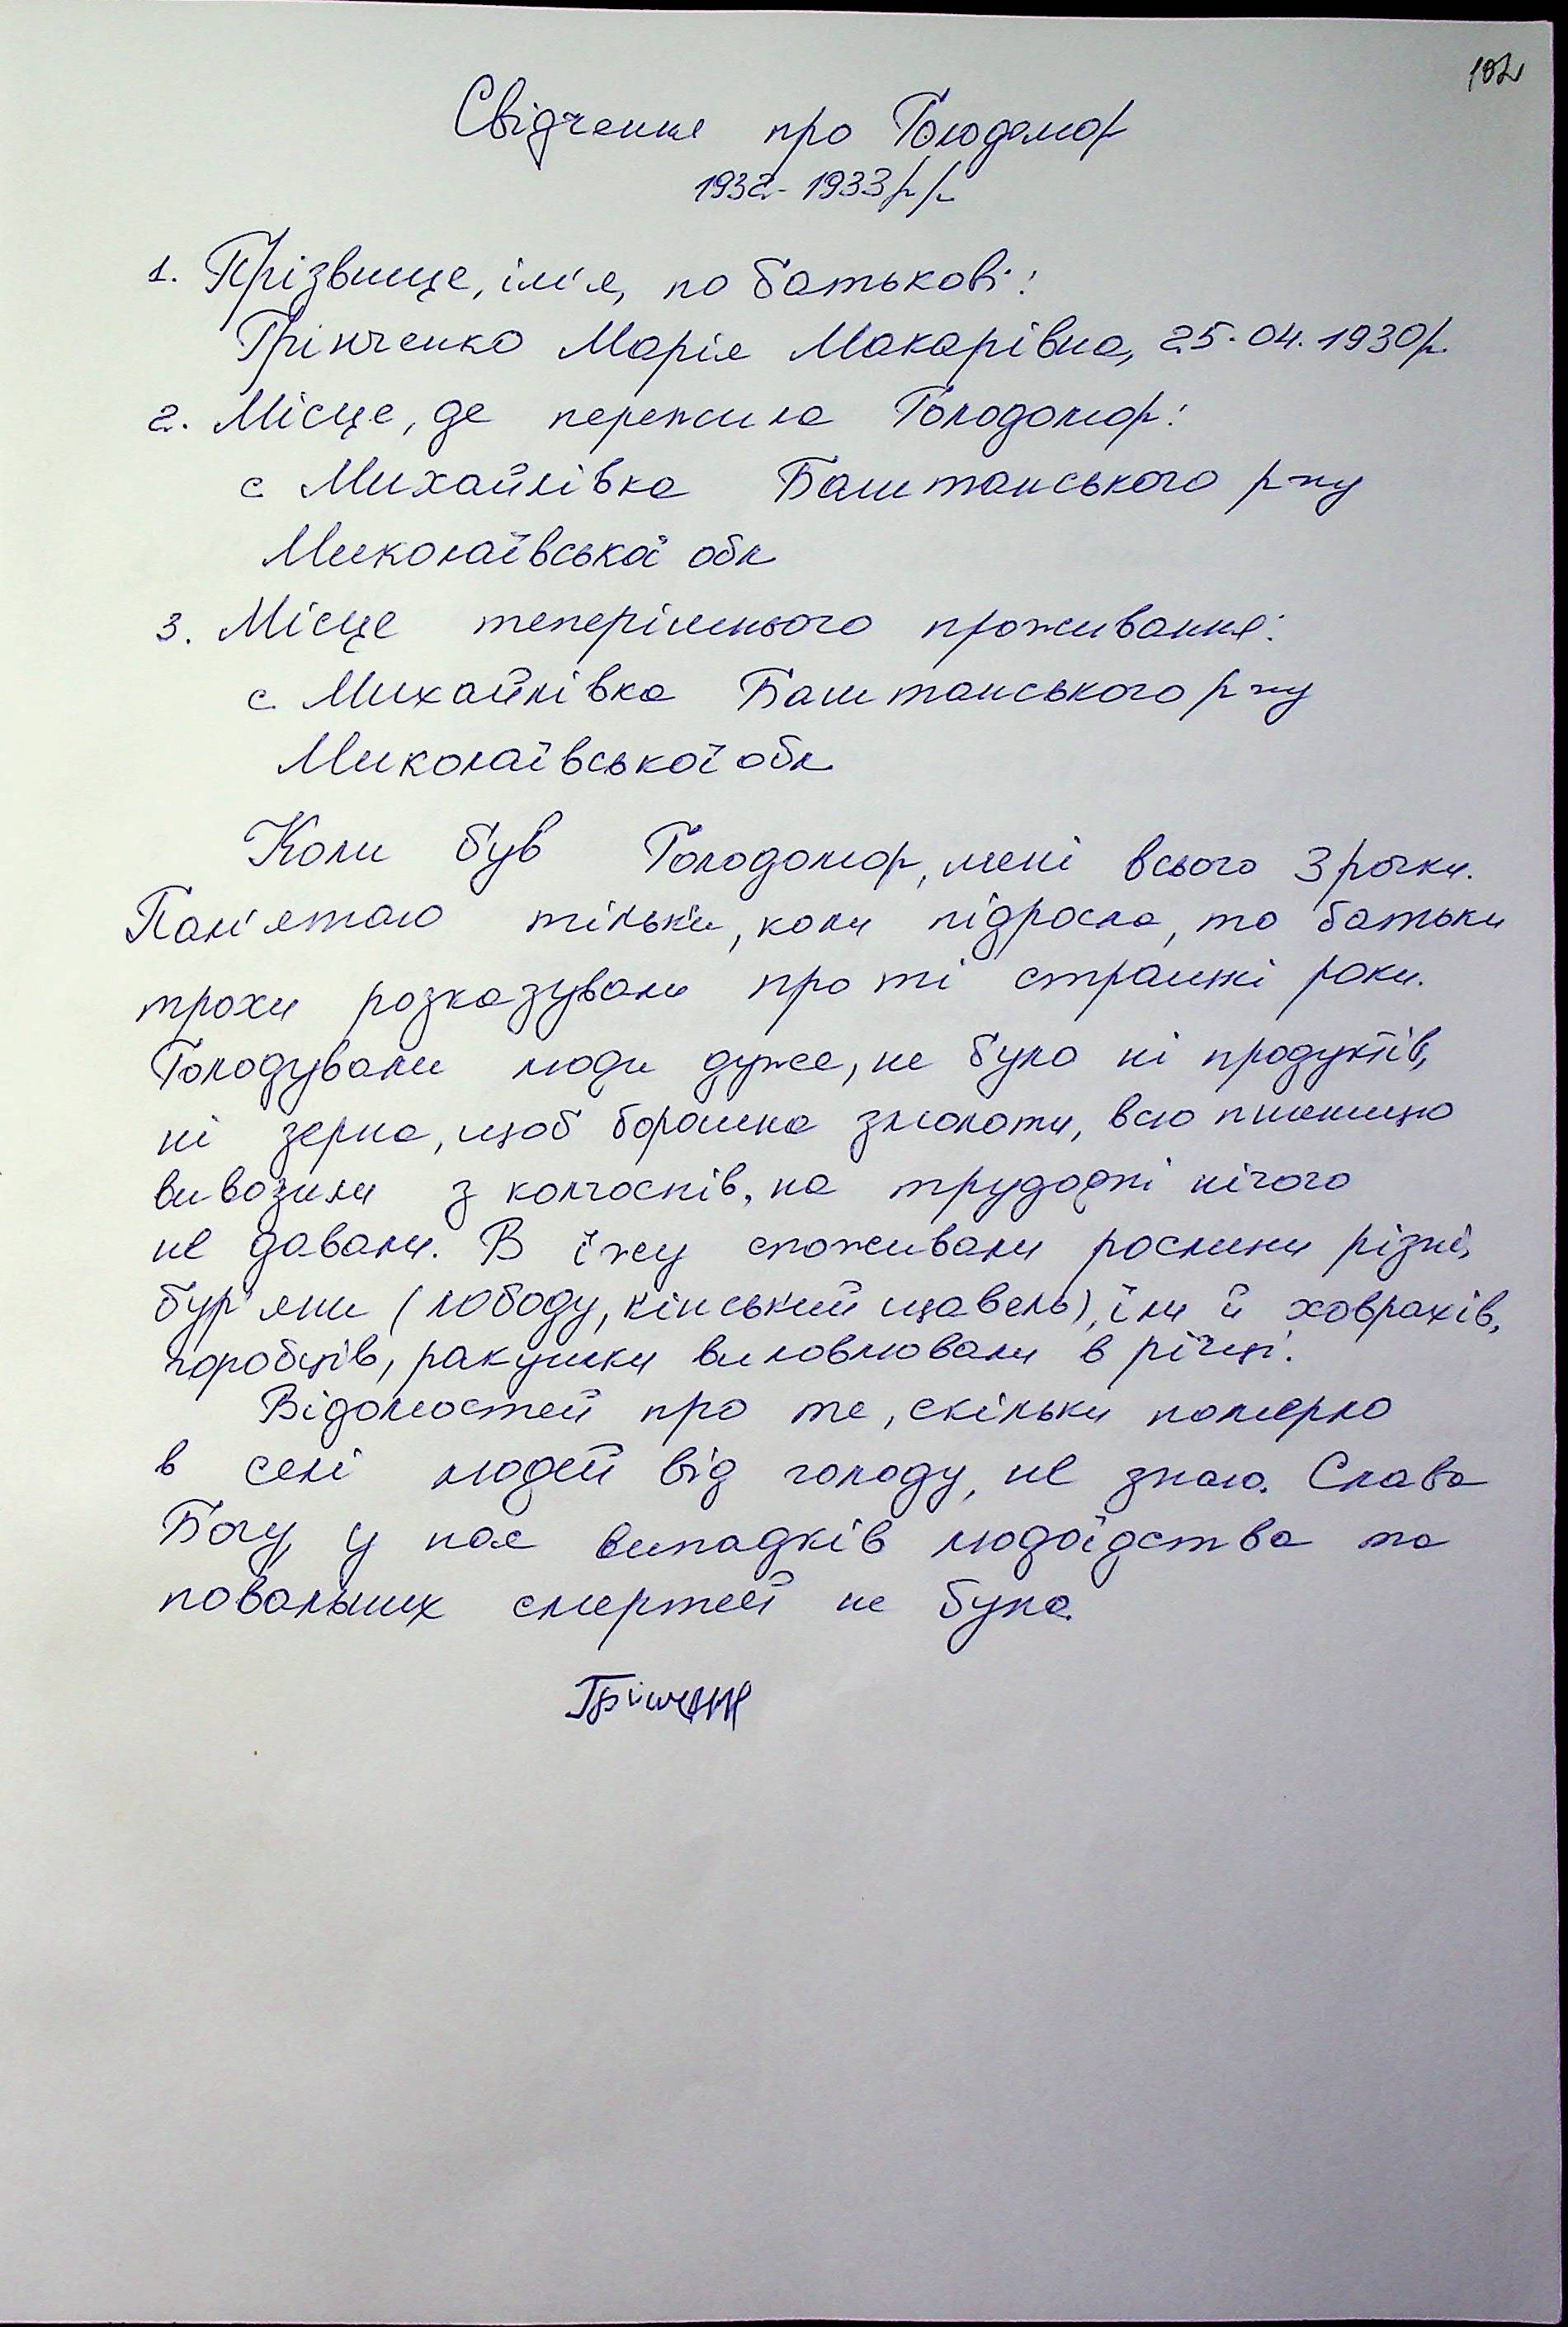 102
Свідчення про Голодомор
1932-1933р/р
1. Прізвище, ім'я, по батькові:
Грінченко Марія Макарівна, 25.04.1930р.
2. Місце, де пережила Голодомор:
с Михайлівка Баштанського р-ну
Миколаївської обл
3. Місце теперішнього проживання:
с. Михайлівка Баштанського р-ну
Миколаївської обл
Коли був Голодомор, мені всього 3 рочки.
Пам'ятаю тільки, коли підросла, то батьки
трохи розказували про ті страшні роки.
Голодували люди дуже, не було ні продуктів,
ні зерна, щоб борошна змолоти, всю пшеницю
вивозили з колгоспів, на трудодні нічого
не давали. В їжу споживали рослини різні,
бур'яни (лободу, кінський щавель), їли й ховрахів,
горобців, ракушки виловлювали в річці.
Відомостей про те, скільки померло
в селі людей від голоду, не знаю. Слава
Богу, у нас випадків людоїдства та
повальних смертей не було.